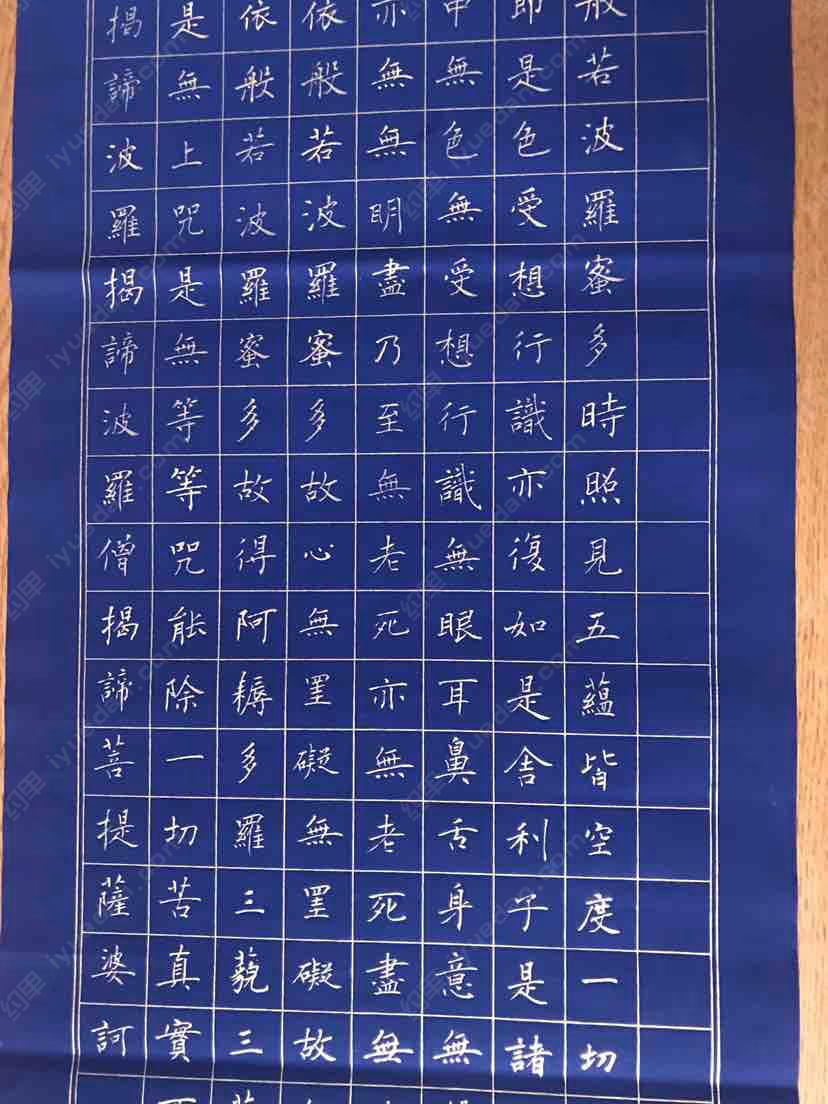 般若波羅蜜多時照見五蘊皆空度一切
即是色受想行識亦復如是舍利子是諸
中無色無受想行識無眼耳鼻舌身意無
亦無無明盡乃至無老死亦無老死盡無
依般若波羅蜜多故心無罣礙無罣礙故
依般若波羅蜜多故得阿耨多羅三藐三
是無上咒是無等等咒能除一切苦真實
揭諦波羅揭諦波羅僧揭諦菩提薩婆訶
iyuedan.com